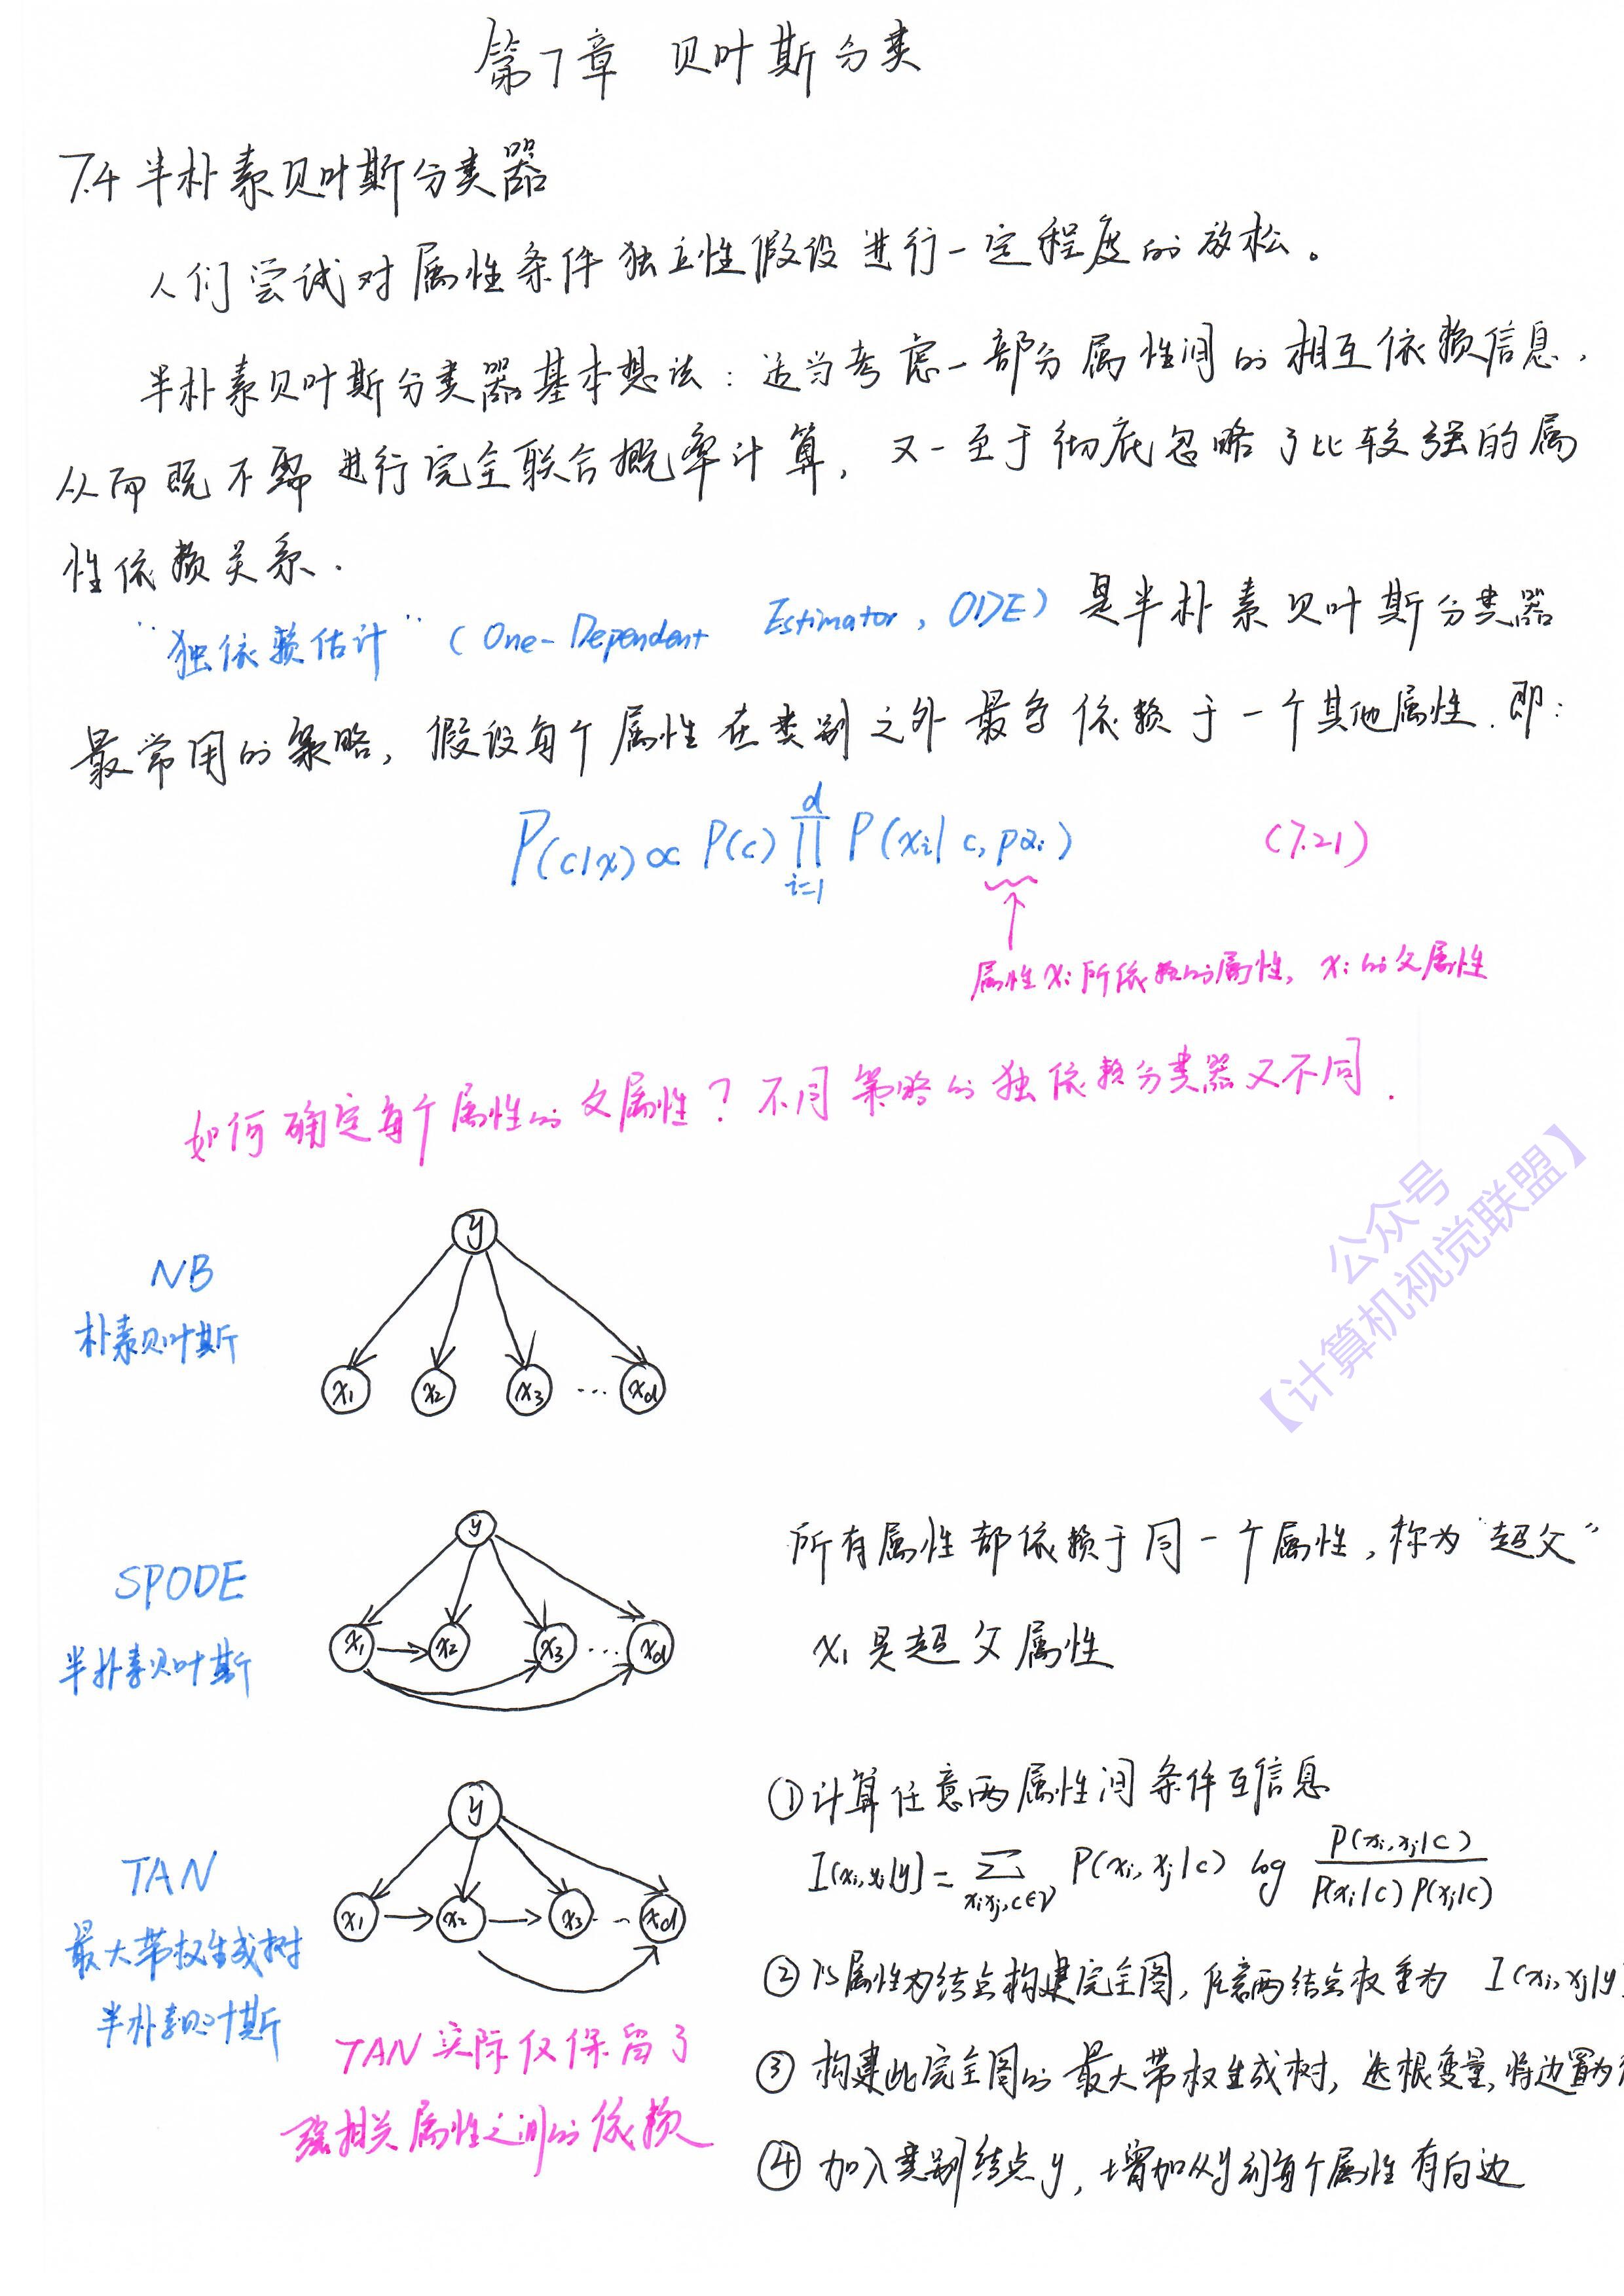 第7章 贝叶斯分类
7.4 半朴素贝叶斯分类器
人们尝试对属性条件独立性假设进行一定程度的放松。
半朴素贝叶斯分类器基本想法：适当考虑一部分属性间的相互依赖信息，
从而既不需进行完全联合概率计算，又一至于彻底忽略了比较强的属
性依赖关系.
"独依赖估计"（One-Dependent Estimator, ODE）是半朴素贝叶斯分类器
最常用的策略，假设每个属性在类别之外最多依赖于一个其他属性.即：
P(c|x) ∝ P(c) ∏_{i=1}^{d} P(xi | c, pai) (7.21)
属性xi所依赖的属性，xi的父属性
如何确定每个属性的父属性？不同策略的独依赖分类器又不同.
公众号
【计算机视觉联盟】
y
NB
朴素贝叶斯
x1 x2 x3 … xd
y
所有属性都依赖于同一个属性，称为"超父"
SPODE
半朴素贝叶斯
x1 x2 x3 … xd
x1是超父属性
y
①计算任意两属性间条件互信息
I(xi, xj|y) = ∑_{xi xj, c∈y} P(xi, xj|c) log P(xi, xj|c) / P(xi|c) P(xj|c)
TAN
最大带权生成树
半朴素贝叶斯
x1 x2 x3 … xd
②以属性为结点构建完全图，任意两结点权重为 I(xi, xj|y)
③构建此完全图的最大带权生成树，选根变量，将边置为
④加入类别结点y，增加从y到每个属性有向边
TAN实际仅保留了
强相关属性之间的依赖